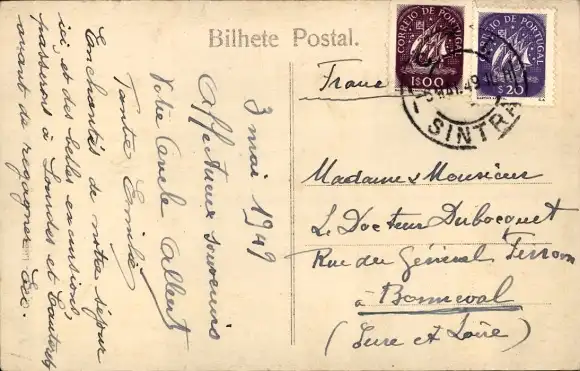 Bilhete Postal.
CORREIO DE PORTUGAL
1$00
CORREIO DE PORTUGAL
$20
SINTRA
France
3 mai 1949
Affectueux souvenirs
Votre Oncle Albert
Tante Emilie
Enchantés de notre séjour
ici, et des belles excursions,
passerons à Lourdes et Cauterets
avant de regagner
Madame & Monsieur
Le Docteur Dubocquet
Rue du Général
à Bonneval
(Eure et Loire)